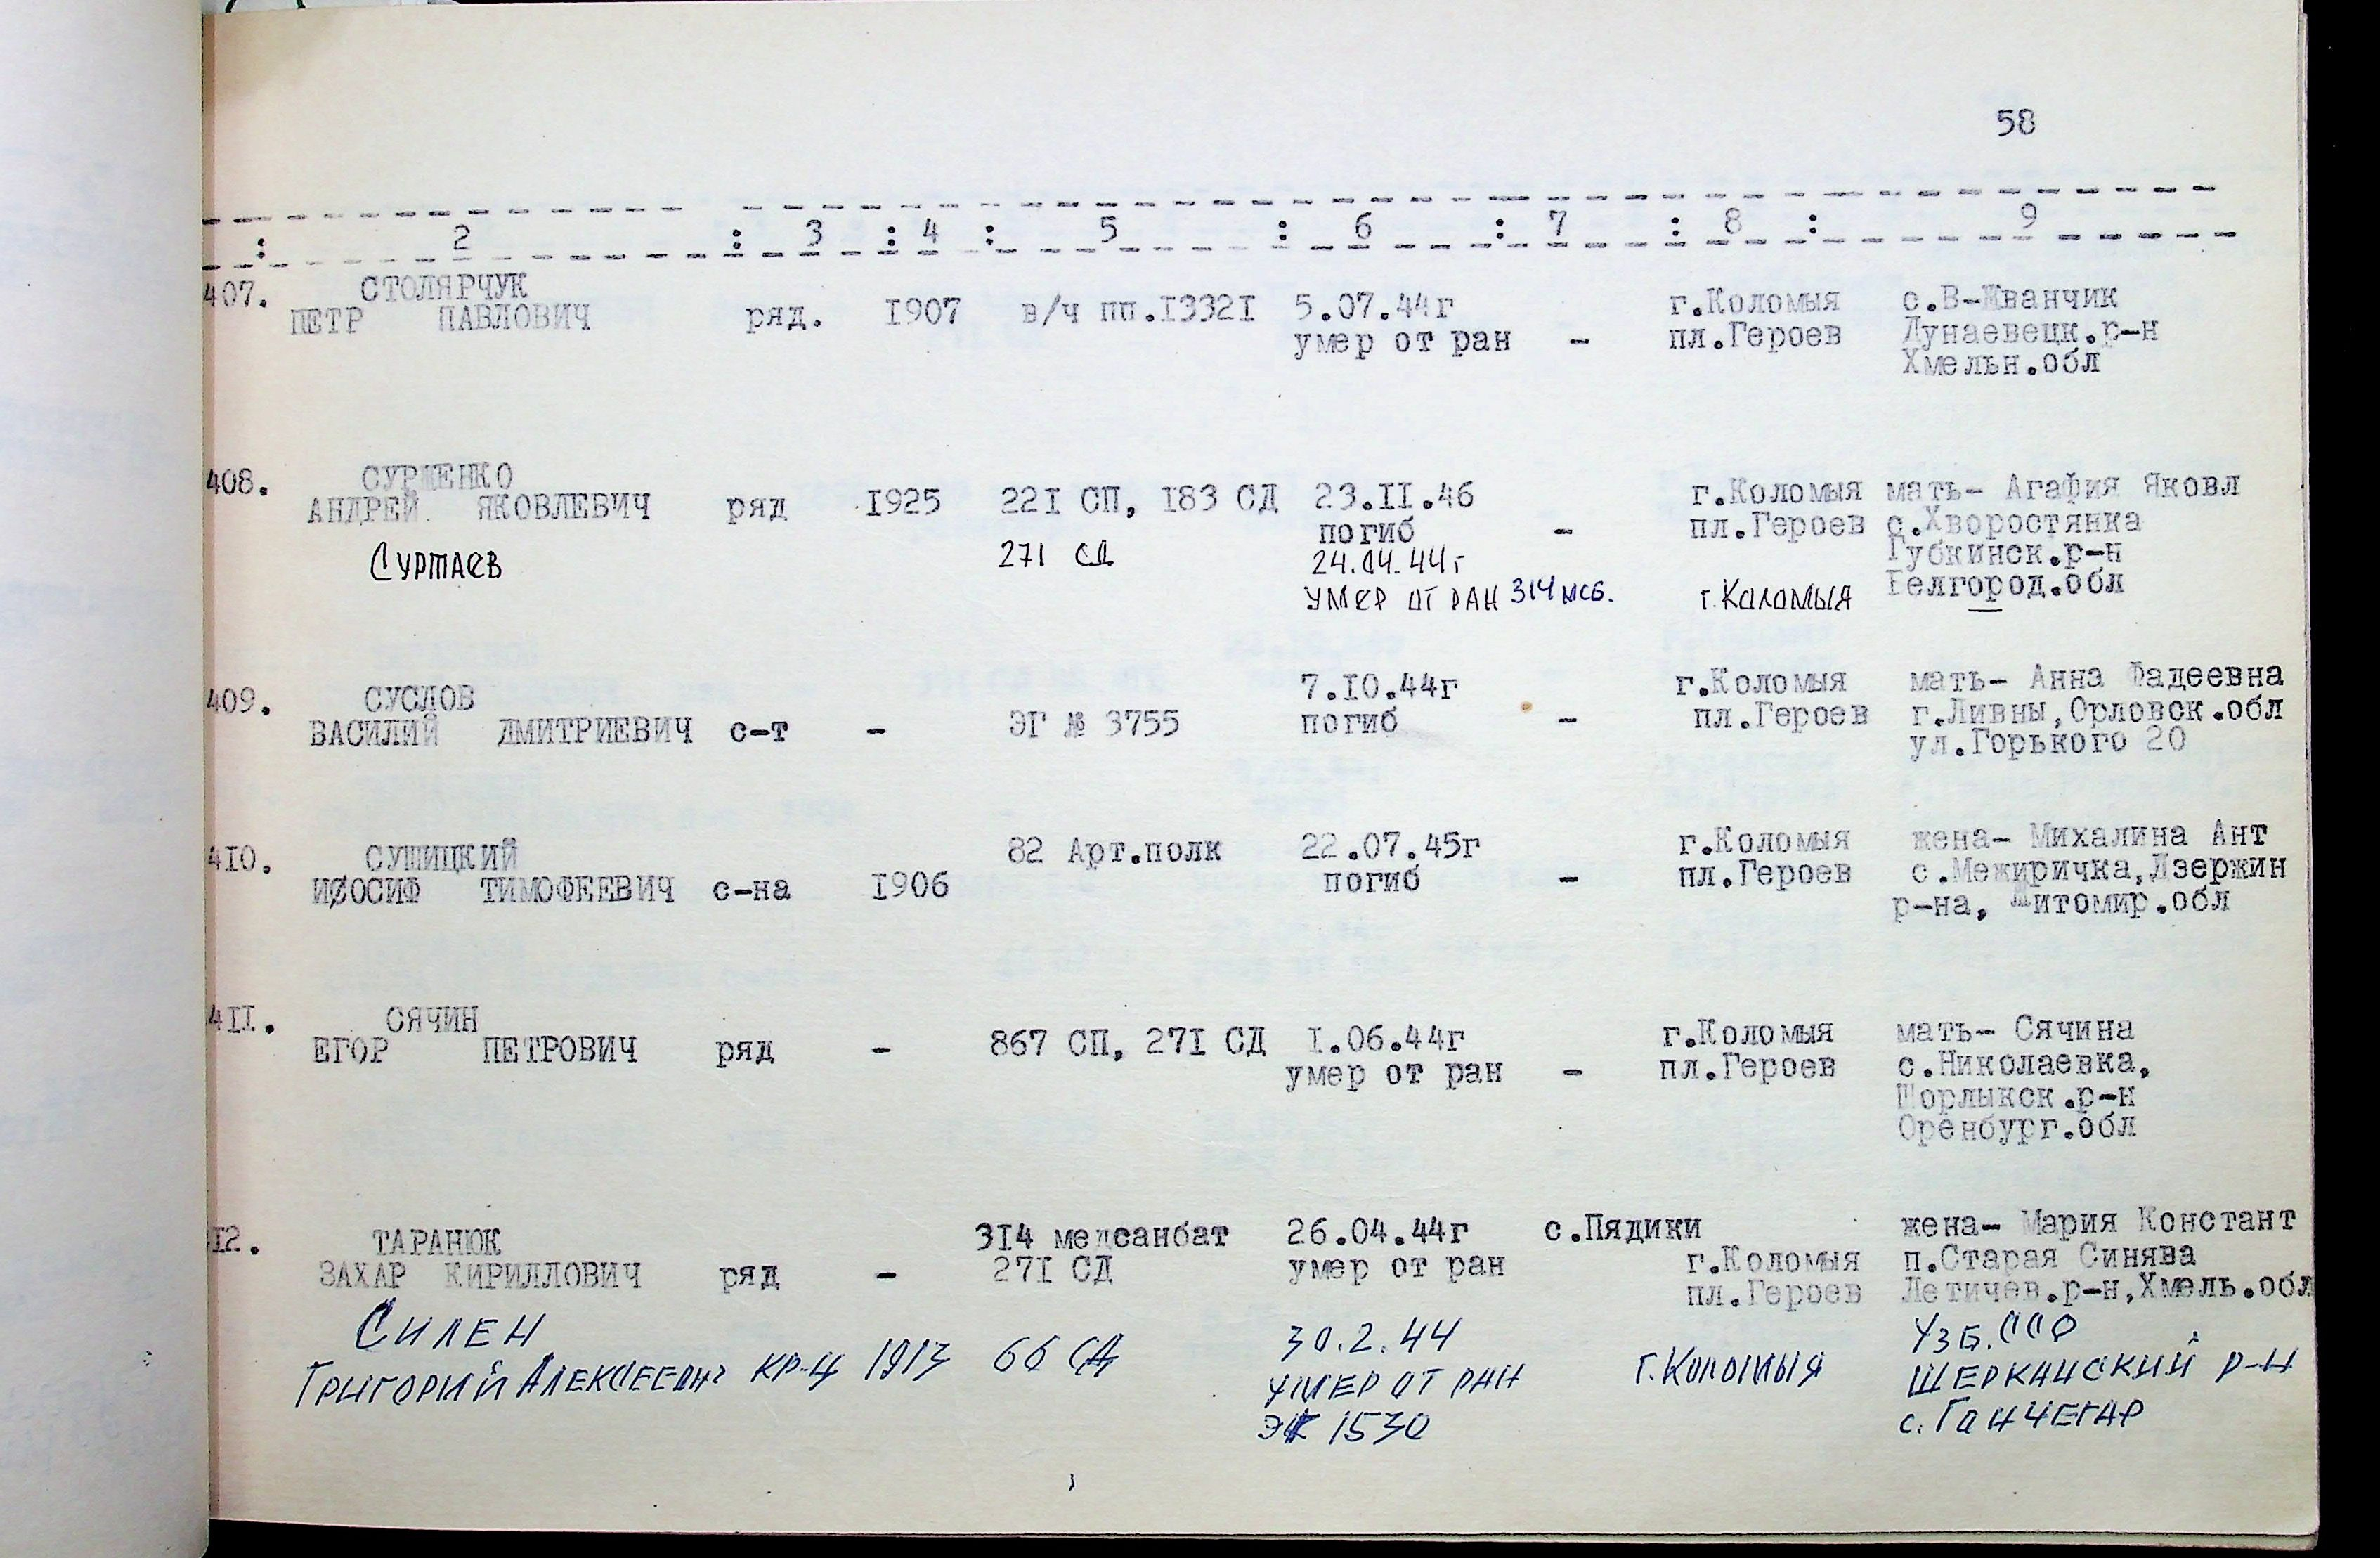 58
: 2 : 3 : 4 : 5 : 6 : 7 : 8 : 9
407. СТОЛЯРЧУК
ПЕТР ПАВЛОВИЧ ряд. I907 в/ч пп.I332I 5.07.44г г.Коломыя с.В-Жванчик
умер от ран - пл.Героев Дунаевецк.р-н
Хмельн.обл
408. СУРЖЕНКО
АНДРЕЙ ЯКОВЛЕВИЧ ряд I925 22I СП, I83 СД 23.II.46 г.Коломыя мать- Агафия Яковл
погиб - пл.Героев с.Хворостянка
Суртаев 271 СД 24.04.44г Губкинск.р-н
умер от ран 314 мсб. г.Коломыя Белгород.обл
409. СУСЛОВ 7.I0.44г г.Коломыя мать- Анна Фадеевна
ВАСИЛИЙ ДМИТРИЕВИЧ с-т - ЭГ № 3755 погиб - пл.Героев г.Ливны,Орловск.обл
ул.Горького 20
4I0. СУШИЦКИЙ 82 Арт.полк 22.07.45г г.Коломыя жена- Михалина Ант
ИОСИФ ТИМОФЕЕВИЧ с-на I906 погиб - пл.Героев с.Межиричка,Дзержин
р-на, Житомир.обл
4II. СЯЧИН
ЕГОР ПЕТРОВИЧ ряд - 867 СП, 27I СД I.06.44г г.Коломыя мать- Сячина
умер от ран - пл.Героев с.Николаевка,
Шорлыкск.р-н
Оренбург.обл
I2. ТАРАНЮК 3I4 медсанбат 26.04.44г с.Пядики жена- Мария Констант
ЗАХАР КИРИЛЛОВИЧ ряд - 27I СД умер от ран г.Коломыя п.Старая Синява
пл.Героев Летичев.р-н,Хмель.обл
Силен 30.2.44 Узб.ССР
Григорий Алексеевич кр-ц 1913 66 СД умер от ран г.Коломыя Шерканский р-н
1530 с.Ганчегар